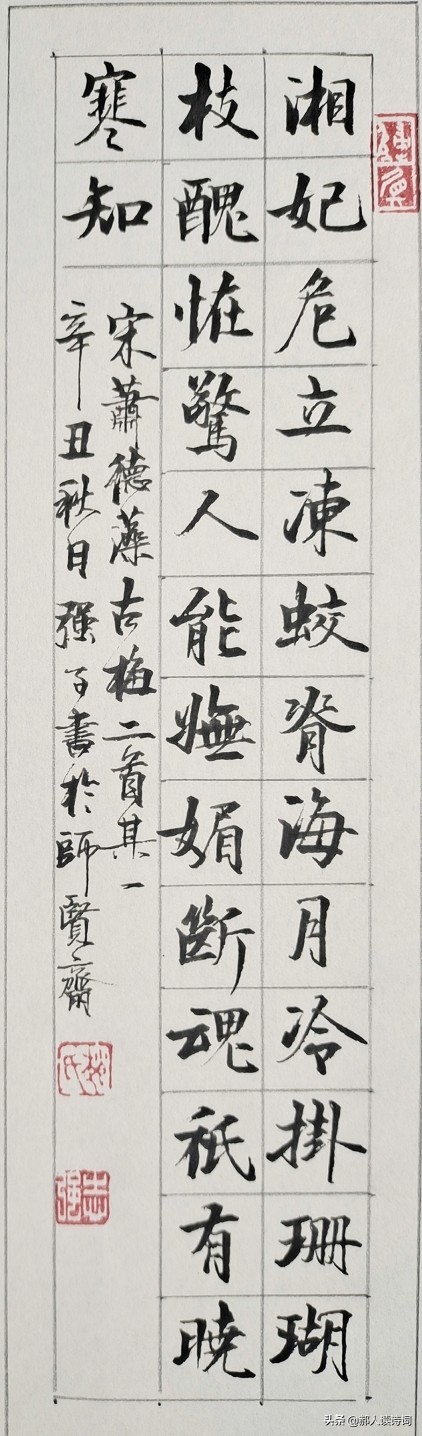 湘妃危立凍蛟脊海月冷掛珊瑚
枝醜怪驚人能嫵媚斷魂祇有曉
寒知
宋蕭德藻古梅二首其一
辛丑秋日强子書於師賢齋
頭条@郝人讲诗词